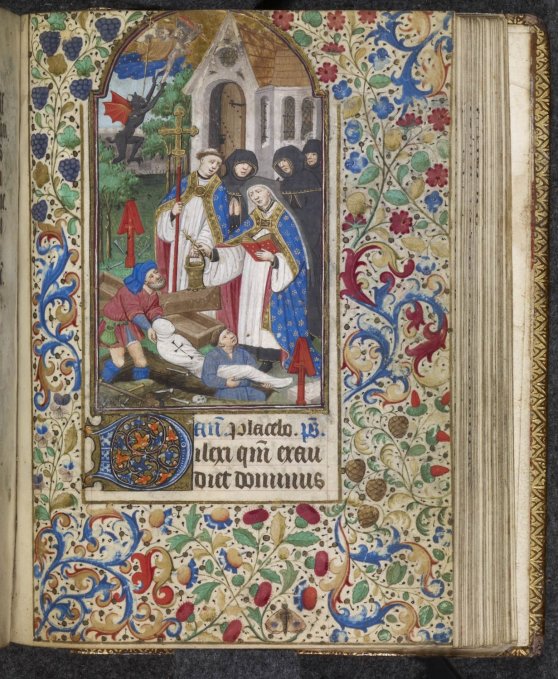 Añ. Placebo. p̄s.
Dilexi qm̄ exau
diet dominus